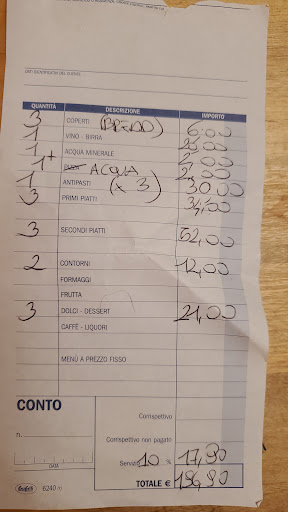 DATI IDENTIFICATIVI DEL CLIENTE
QUANTITÀ DESCRIZIONE IMPORTO
3 COPERTI (BREAD) 6,00
1 VINO - BIRRA
1 ACQUA MINERALE 2,00
1+ ACQUA 2,00
1 ANTIPASTI (x 3) 30,00
3 PRIMI PIATTI
3 SECONDI PIATTI 52,00
2 CONTORNI 12,00
FORMAGGI
FRUTTA
3 DOLCI - DESSERT 21,00
CAFFÈ - LIQUORI
MENÙ A PREZZO FISSO
CONTO
Corrispettivo
n.
Corrispettivo non pagato
DATA
Servizio 10 % 17,90
6240
TOTALE € 196,90